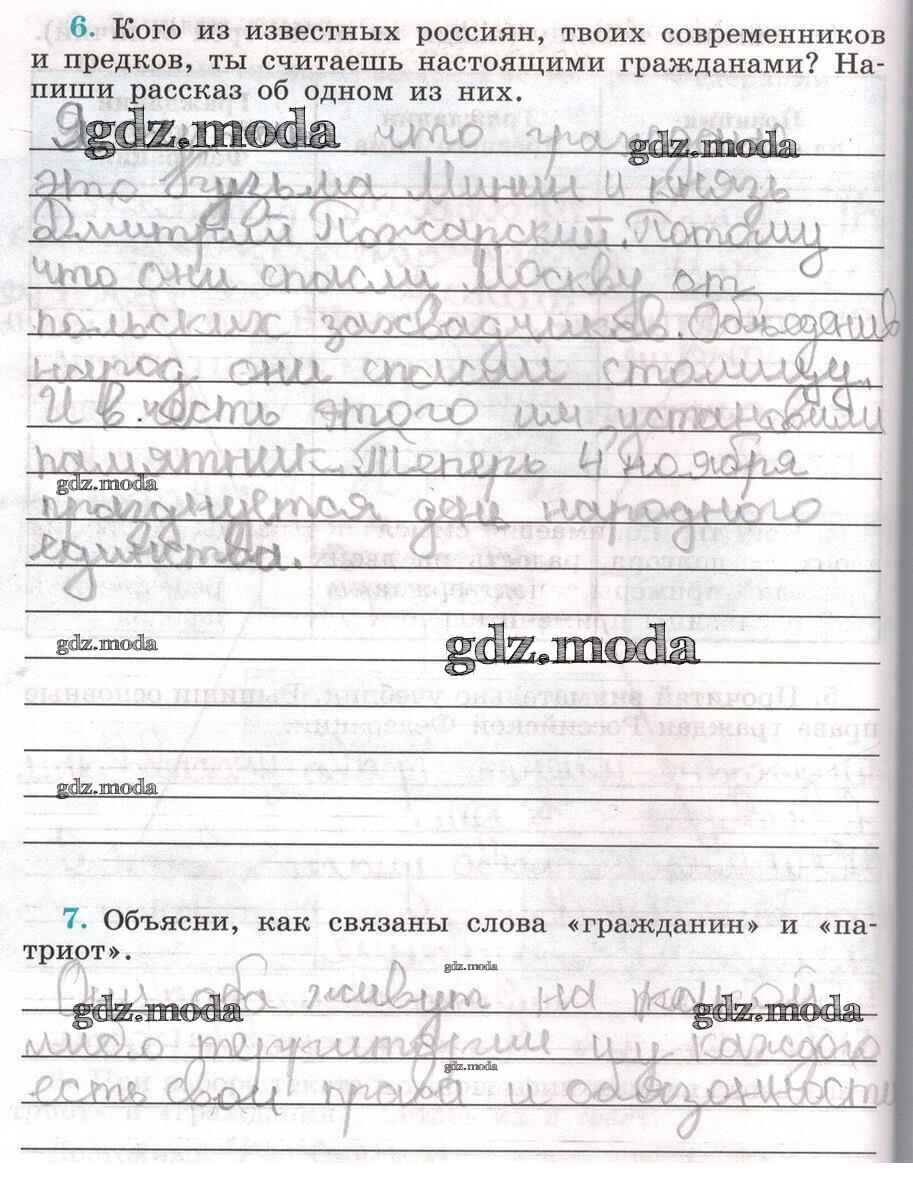 6. Кого из известных россиян, твоих современников
и предков, ты считаешь настоящими гражданами? На-
пиши рассказ об одном из них.
Я что граждане
gdz.moda
gdz.moda
это Кузьма Минин и князь
Дмитрий Пожарский. Потому
что они спасли Москву от
польских захвадчиков. Объеденив
народ они спасли столицу.
И в честь этого им установили
памятник. Теперь 4 ноября
gdz.moda
празднуется день народного
единства.
gdz.moda
gdz.moda
gdz.moda
7. Объясни, как связаны слова «гражданин» и «па-
триот».
gdz.moda
Они оба живут на какой
gdz.moda
gdz.moda
либо территории и у каждого
gdz.moda
есть свои права и обязанности